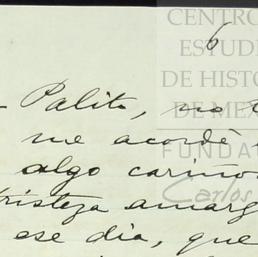 CENTRO
ESTUD
DE HISTO
DE MÉX
FUNDA
Carlos
6
Palito, no
me acordé
algo cariños
tristeza amarg
ese día, que